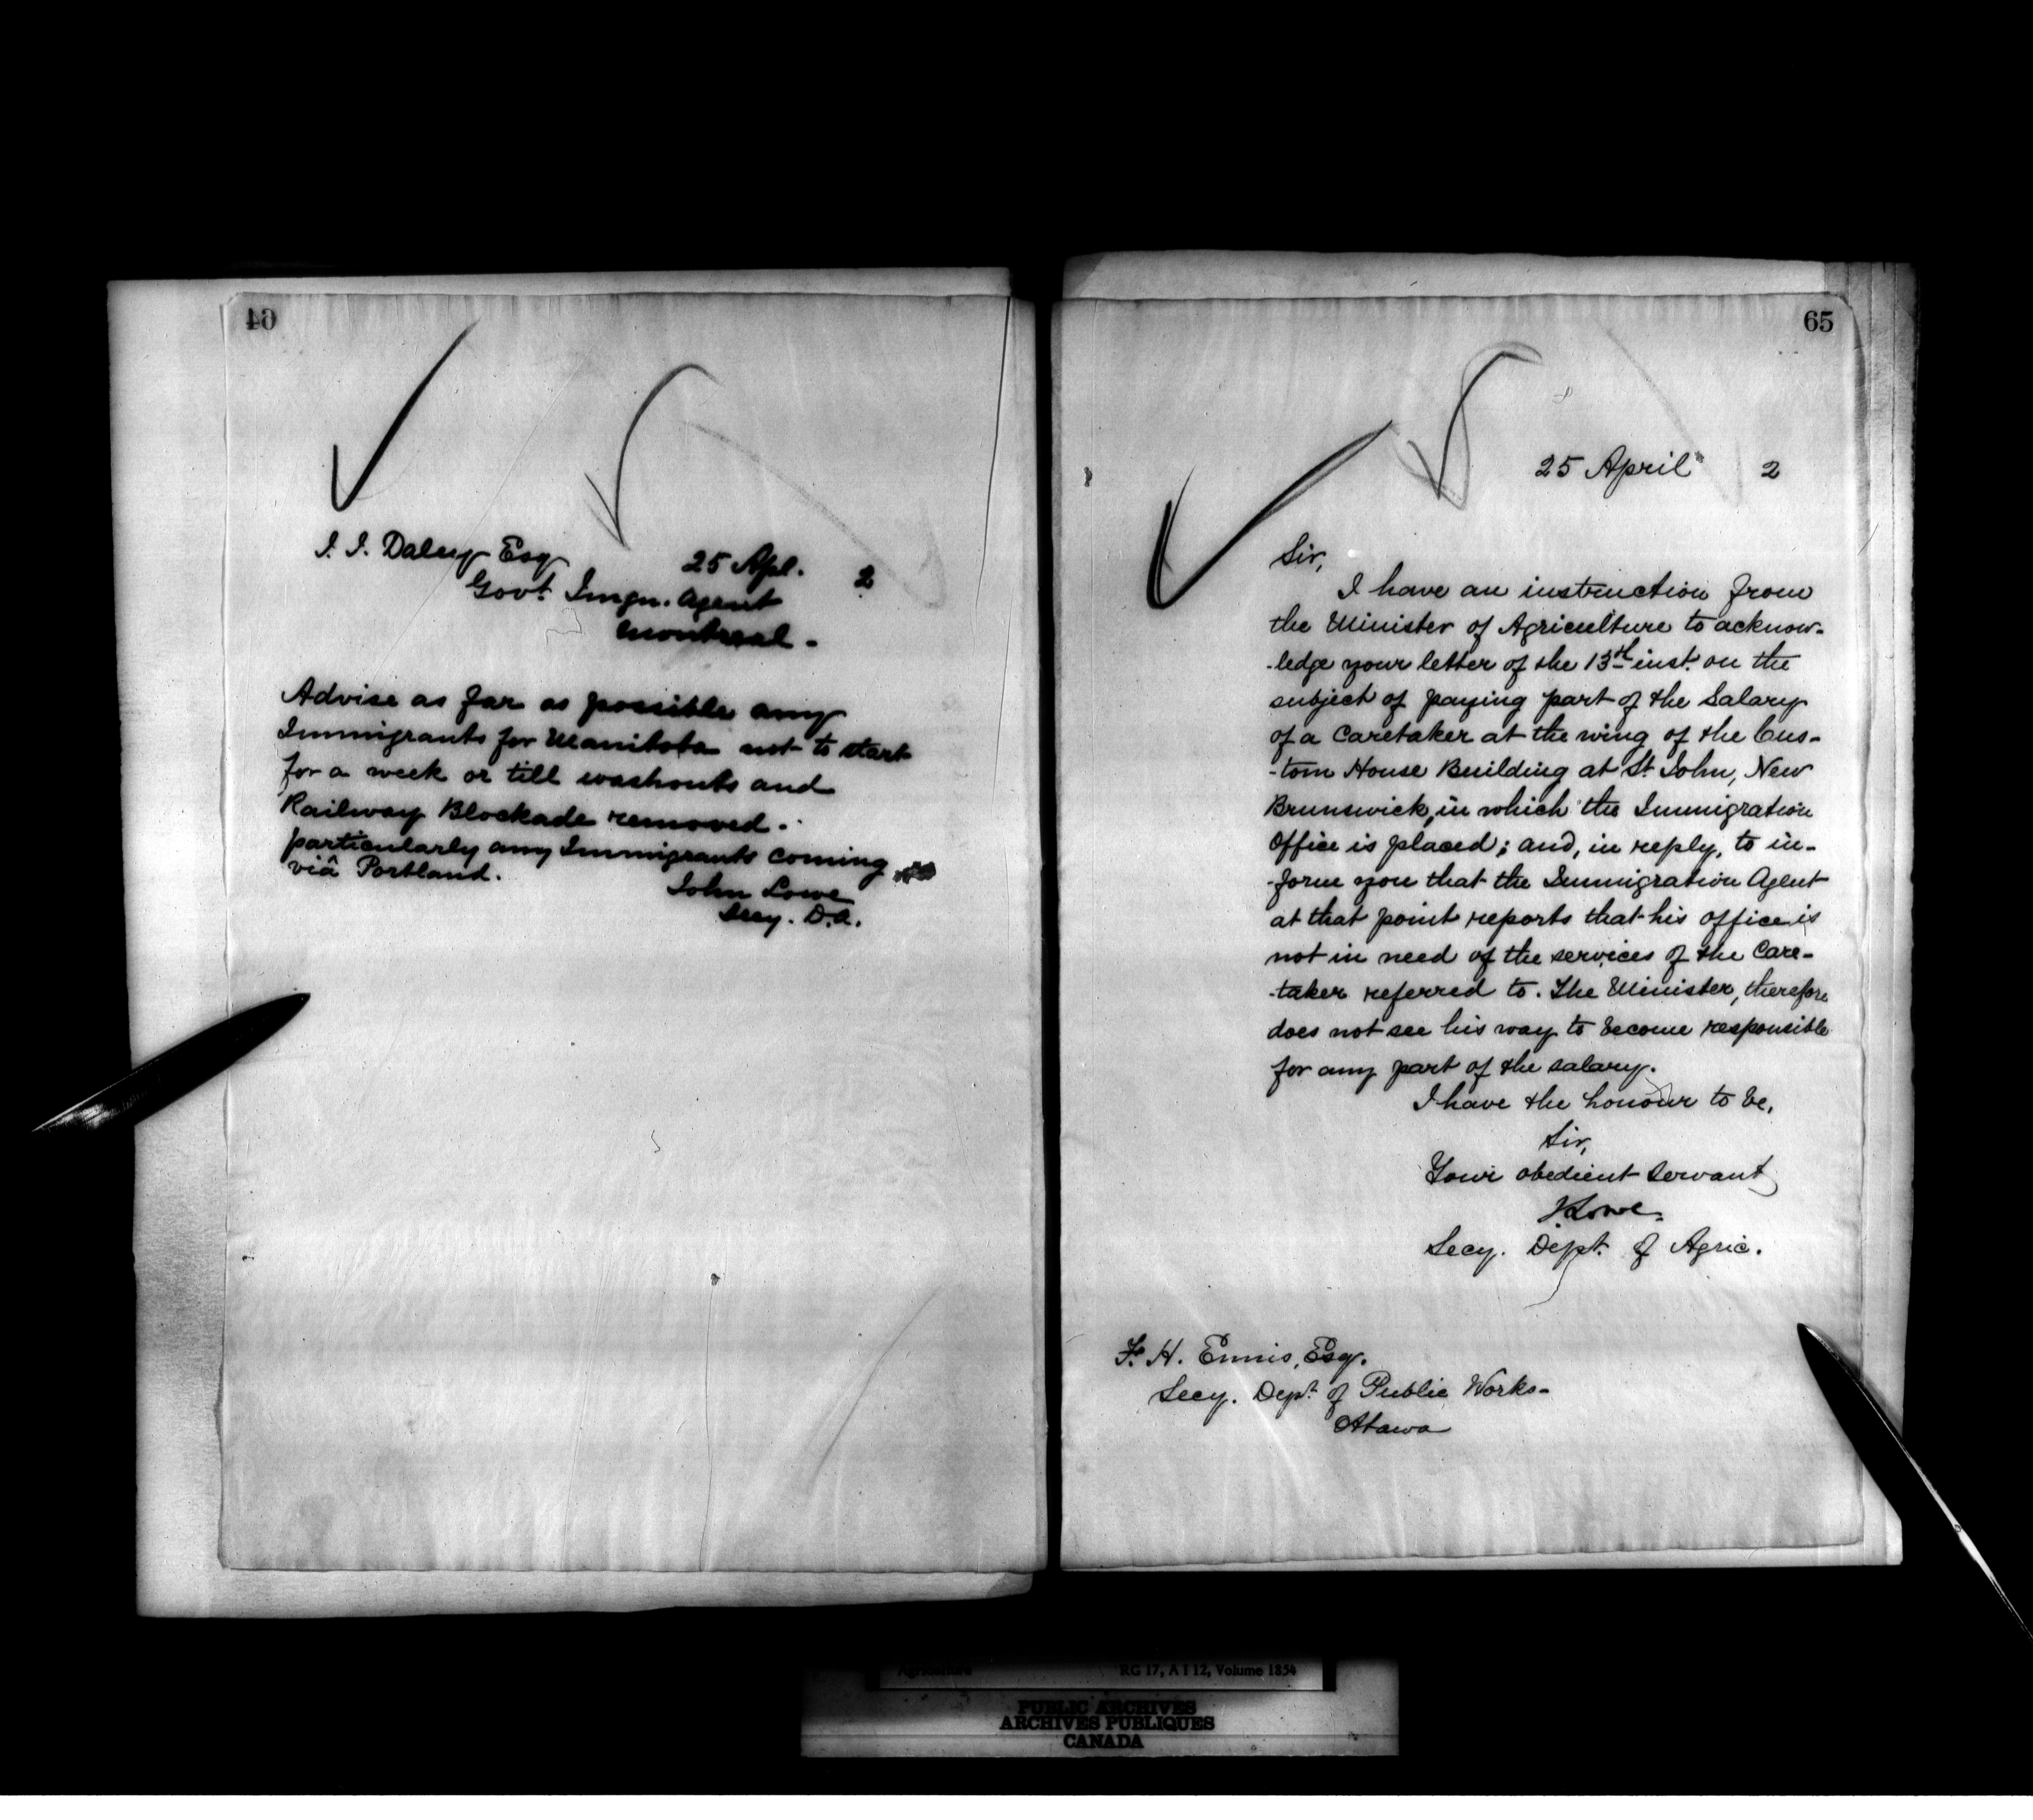 64
J. J. Daley Esq
25 Apl. 2
Govt. Imgn. Agent
Montreal -
Advise as far as possible any
Immigrants for Manitoba not to start
for a week or till washouts and
Railway Blockade removed -
particularly any Immigrants coming
viâ Portland.
John Lowe
Secy. D.A.
65
25 April 2
Sir,
I have an instruction from
the Minister of Agriculture to acknow-
-ledge your letter of the 13th inst. on the
subject of paying part of the Salary
of a Caretaker at the wing of the Cus-
-tom House Building at St. John, New
Brunswick, in which the Immigration
Office is placed; and, in reply, to in-
-form you that the Immigration Agent
at that point reports that his office is
not in need of the services of the Care-
-taker referred to. The Minister, therefore
does not see his way to become responsible
for any part of the salary.
I have the honour to be,
Sir,
Your obedient Servant
J Lowe.
Secy. Dept. of Agric.
F. H. Ennis, Esq.
Secy. Dept. of Public Works -
Ottawa
Agriculture RG 17, A I 12, Volume 1854
PUBLIC ARCHIVES
ARCHIVES PUBLIQUES
CANADA